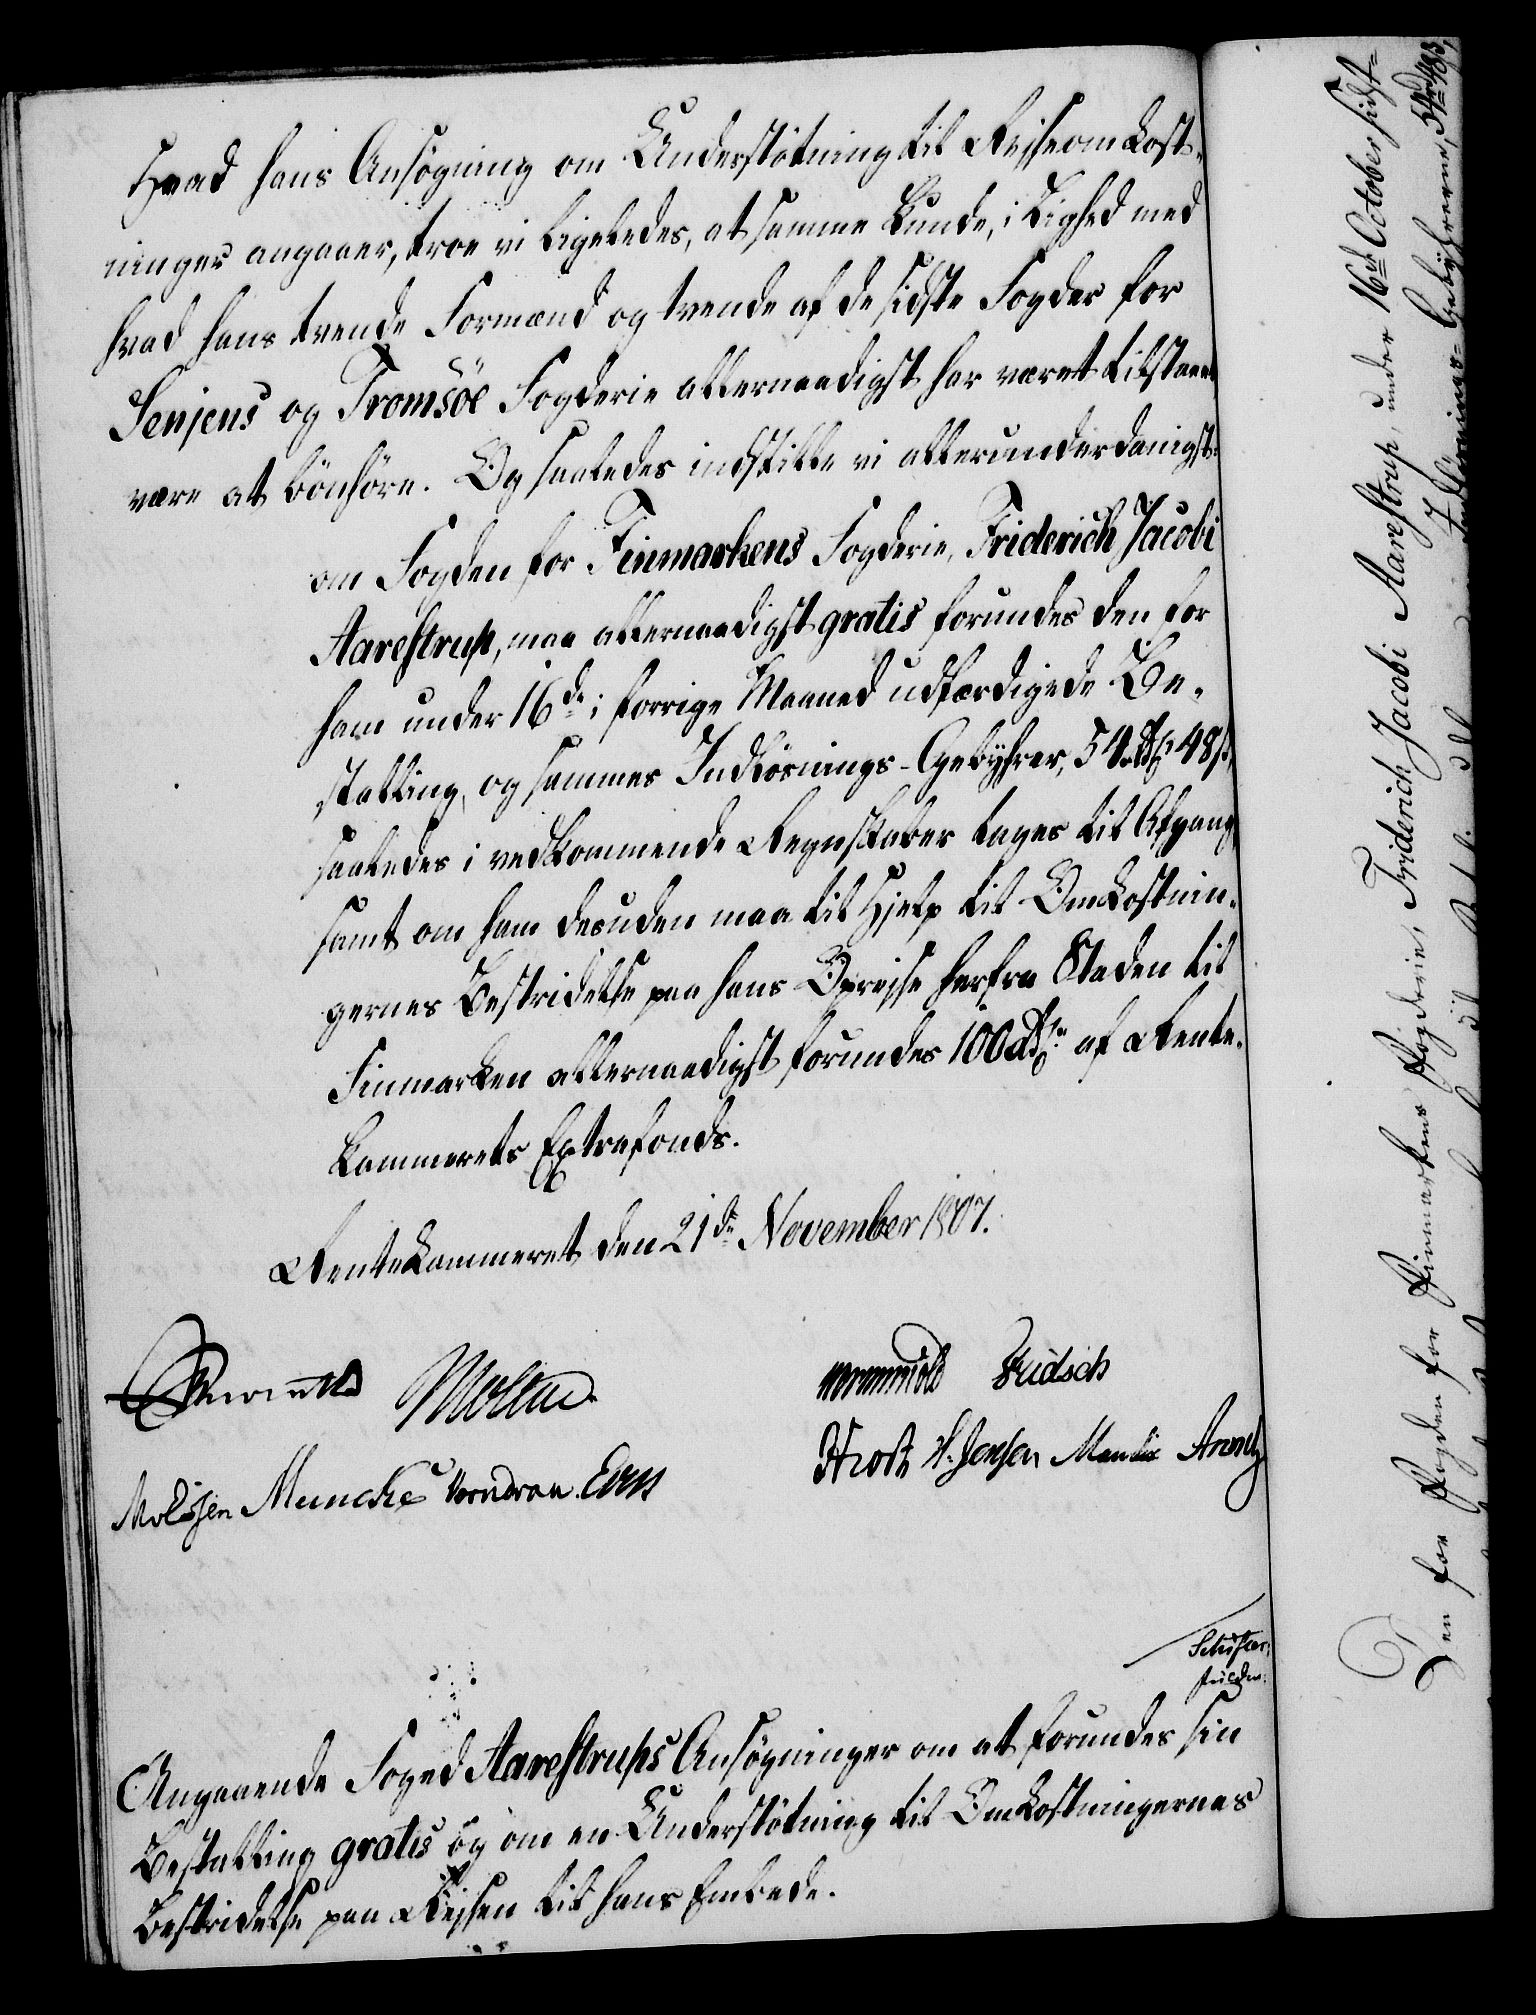 Hvad hans Ansøgning om Understøtning til Reiseomkost-
ninger angaaer, troe vi ligeledes, at samme kunde, i Lighed med
hvad hans trende Formænd og tvende af de sidste Fogder for
Senjens og Tromsöe Fogderie allernaadigst har været tilstaaet
være at bönhöre. Og saaledes indstille vi allerunderdanigst:
om Fogden for Finmarkens Fogderie, Friderich Jacobi
Aarestrup, maa allernaadigst gratis forundes den for
ham under 16de i forrige Maaned udfærdigede Be-
stalling, og sammes Indlösnings-Gebyhrer, 54 Rd 48 s,
saaledes i vedkommende Regnskaber tages til Afgang,
samt om ham desuden maa til Hjelp til Omkostnin-
gernes Bestridelse paa hans Opreise herfra Staden til
Finmarken allernaadigst forundes 100 Rdr af Rente-
kammerets Extrafonds.
Rentekammeret den 21de November 1807.
Reventlow Moltke
Wormskiold Fridsch
Malthe Muncke Vorndran Eers
Hrost H. Jensen Manthe Arentz
Angaaende Foged Aarestrups Ansøgninger om at forundes sin
Bestalling gratis og om en Understötning til Omkostningernes
Bestridelse paa Reisen til hans Embede.
Den for Fogden for Finmarkens Fögderie, Friderich Jacobi Aarestrup, under 16de October sidst-